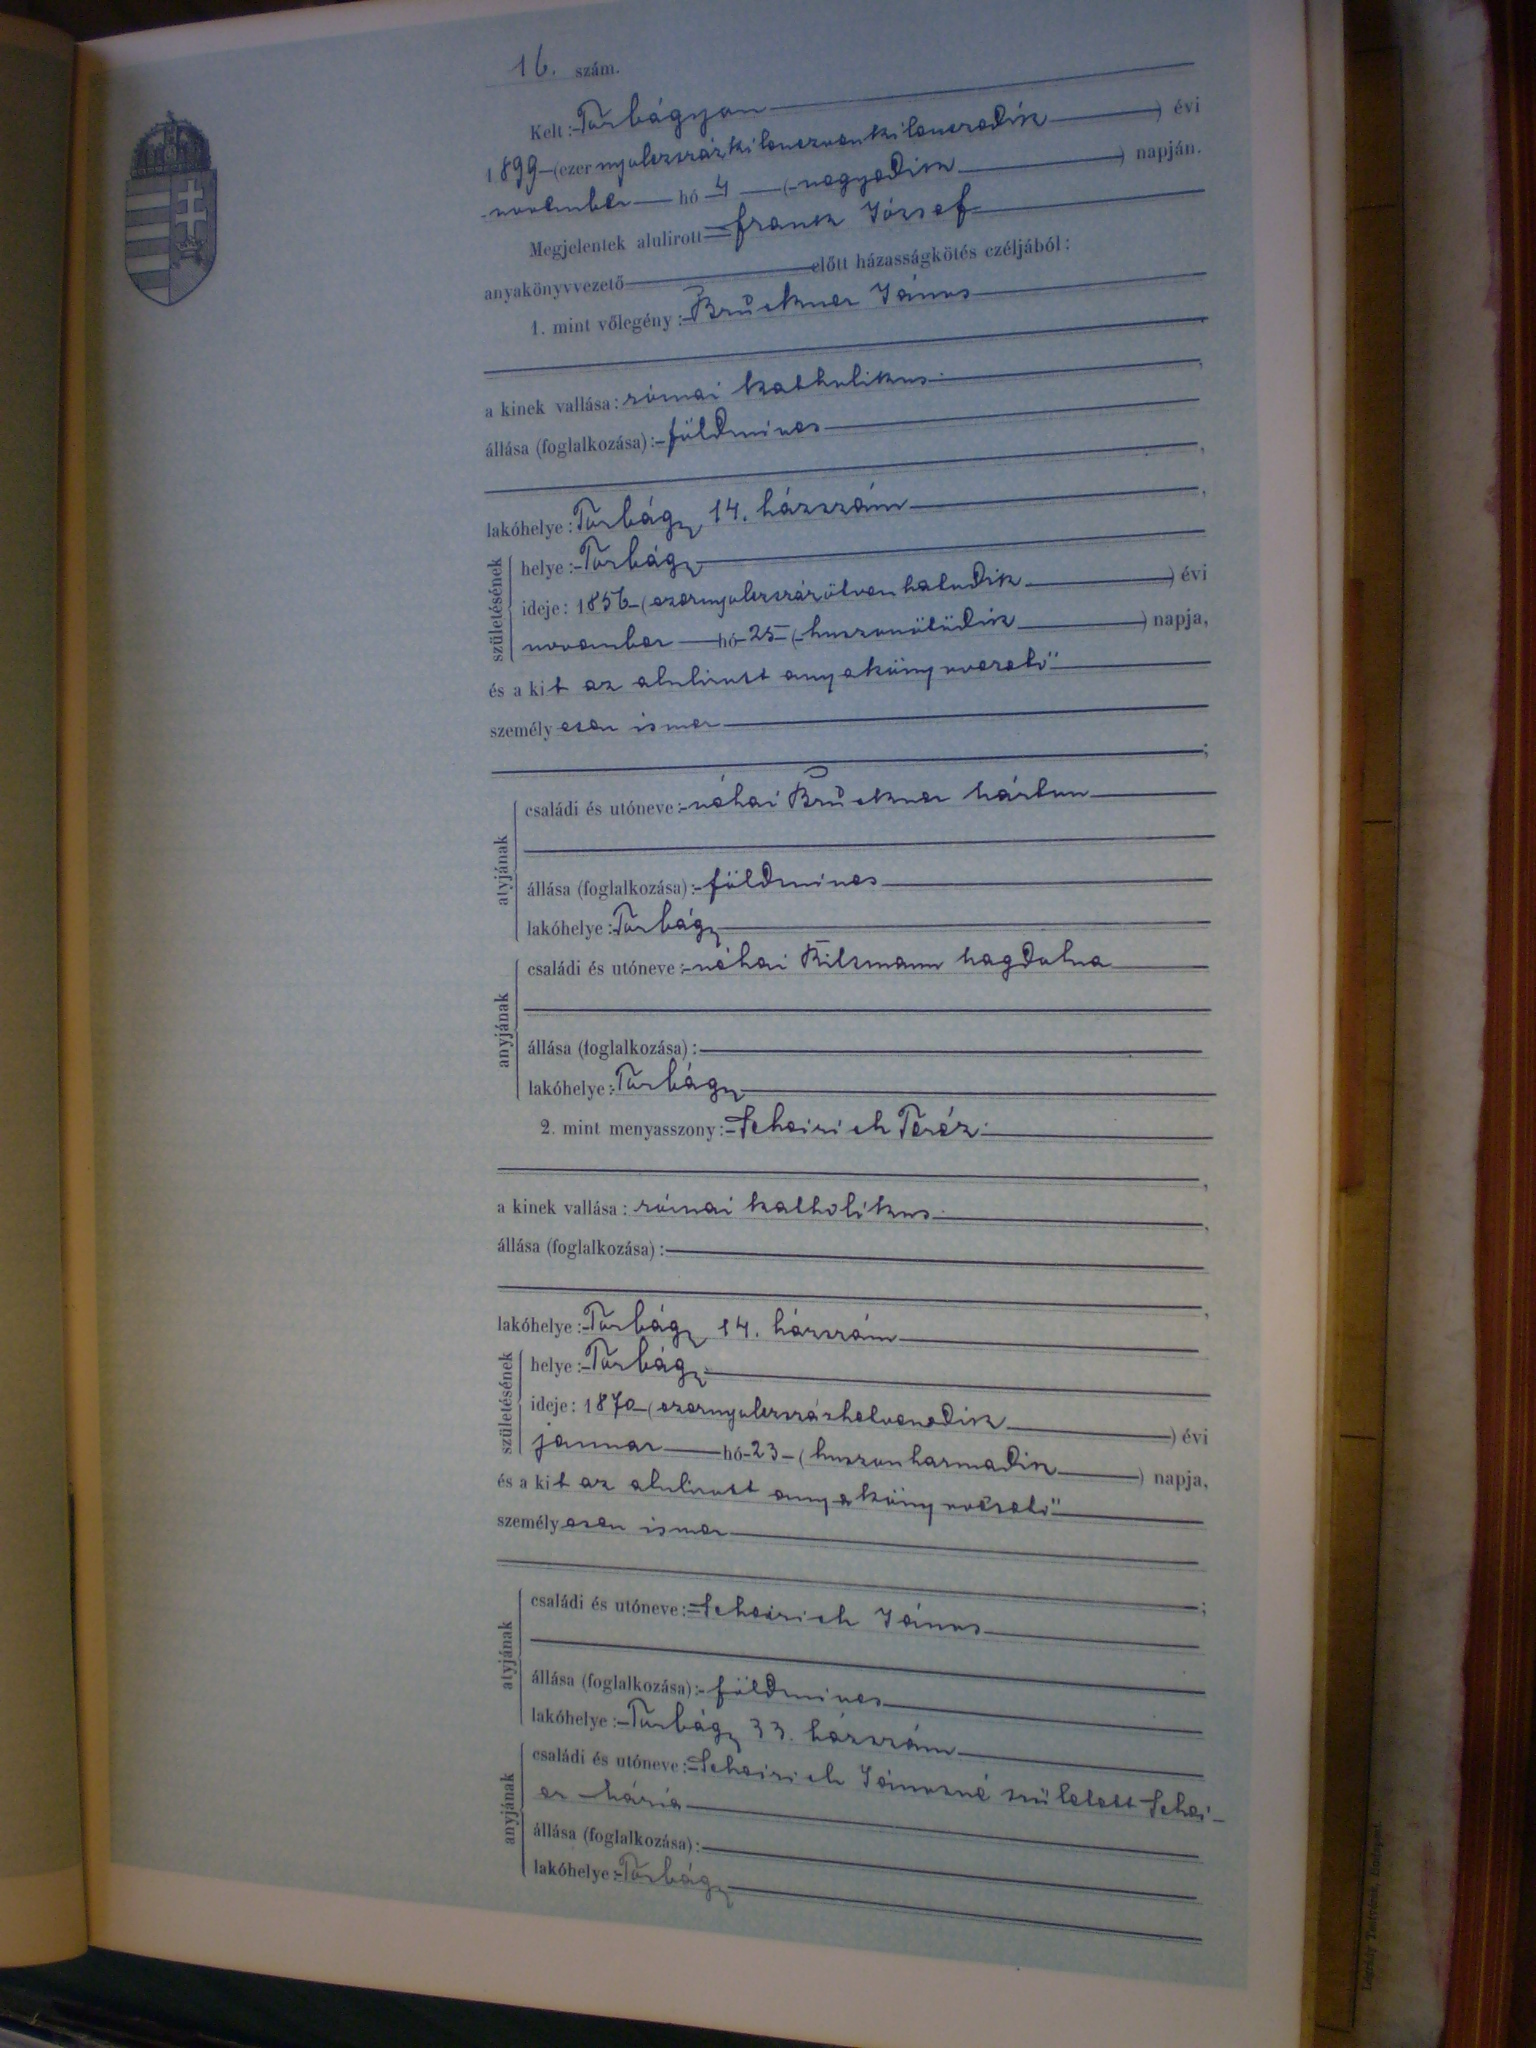 16. szám.
Kelt: Torbágyon
1899 (ezer nyolczszázkilenczvenkilenczedik) évi
november hó 4 (negyedik) napján.
Megjelentek alulirott Franck József
anyakönyvvezető előtt házasságkötés czéljából:
1. mint vőlegény: Brückner János
a kinek vallása: római katholikus,
állása (foglalkozása): földmives,
lakóhelye: Torbágy 14. házszám,
születésének
helye: Torbágy
ideje: 1856 (ezernyolczszázötvenhatodik) évi
november hó 25 (huszonötödik) napja,
és a kit az alulirott anyakönyvvezető
személyesen ismer;
atyjának
családi és utóneve: néhai Brückner Márton
állása (foglalkozása): földmives
lakóhelye: Torbágy
anyjának
családi és utóneve: néhai Magdolna
állása (foglalkozása):
lakóhelye: Torbágy
2. mint menyasszony: Scheirich Teréz,
a kinek vallása: római katholikus,
állása (foglalkozása):,
lakóhelye: Torbágy 14. házszám
születésének
helye: Torbágy
ideje: 1870 (ezernyolczszázhetvenedik) évi
januar hó 23 (huszonharmadik) napja,
és a kit az alulirott anyakönyvvezető
személyesen ismer;
atyjának
családi és utóneve: Scheirich János
állása (foglalkozása): földmives
lakóhelye: Torbágy 33. házszám
anyjának
családi és utóneve: Scheirich Jánosné született Schei-
er Mária
állása (foglalkozása):
lakóhelye: Torbágy